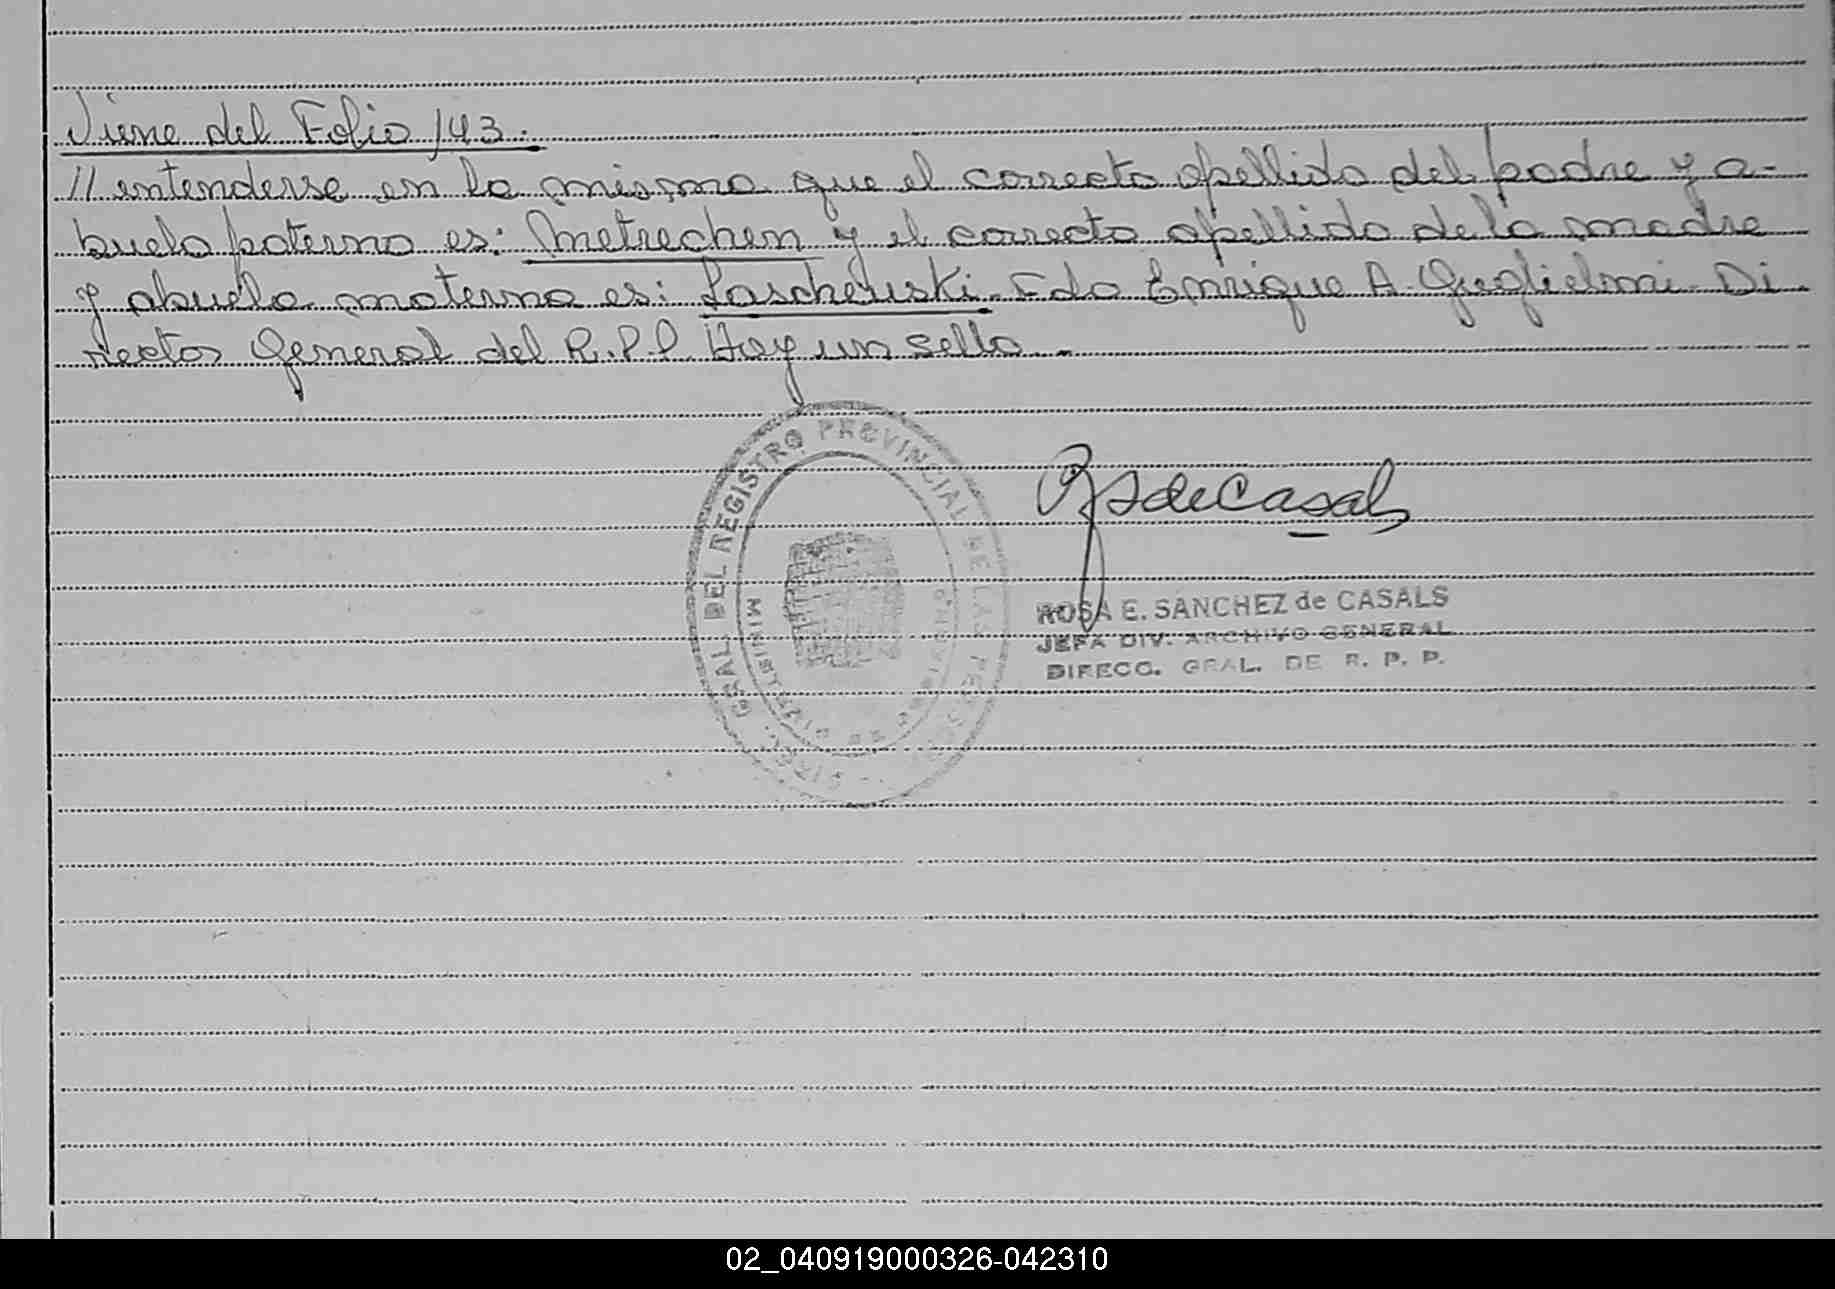 Viene del Folio 143.
// entenderse en la misma que el correcto apellido del padre y a-
buelo paterno es: Metrechen y el correcto apellido de la madre
y abuelo materno es: Lascheuski. Fdo Enrique A. Guglielmi. Di-
rector General del R.P.P. Hay un sello.-
GRAL. DEL REGISTRO PROVINCIAL DE LAS PERSONAS
MINISTERIO DE
ROSA E. SANCHEZ de CASALS
JEFA DIV. ARCHIVO GENERAL
DIRECC. GRAL. DE R. P. P.
02_040919000326-042310